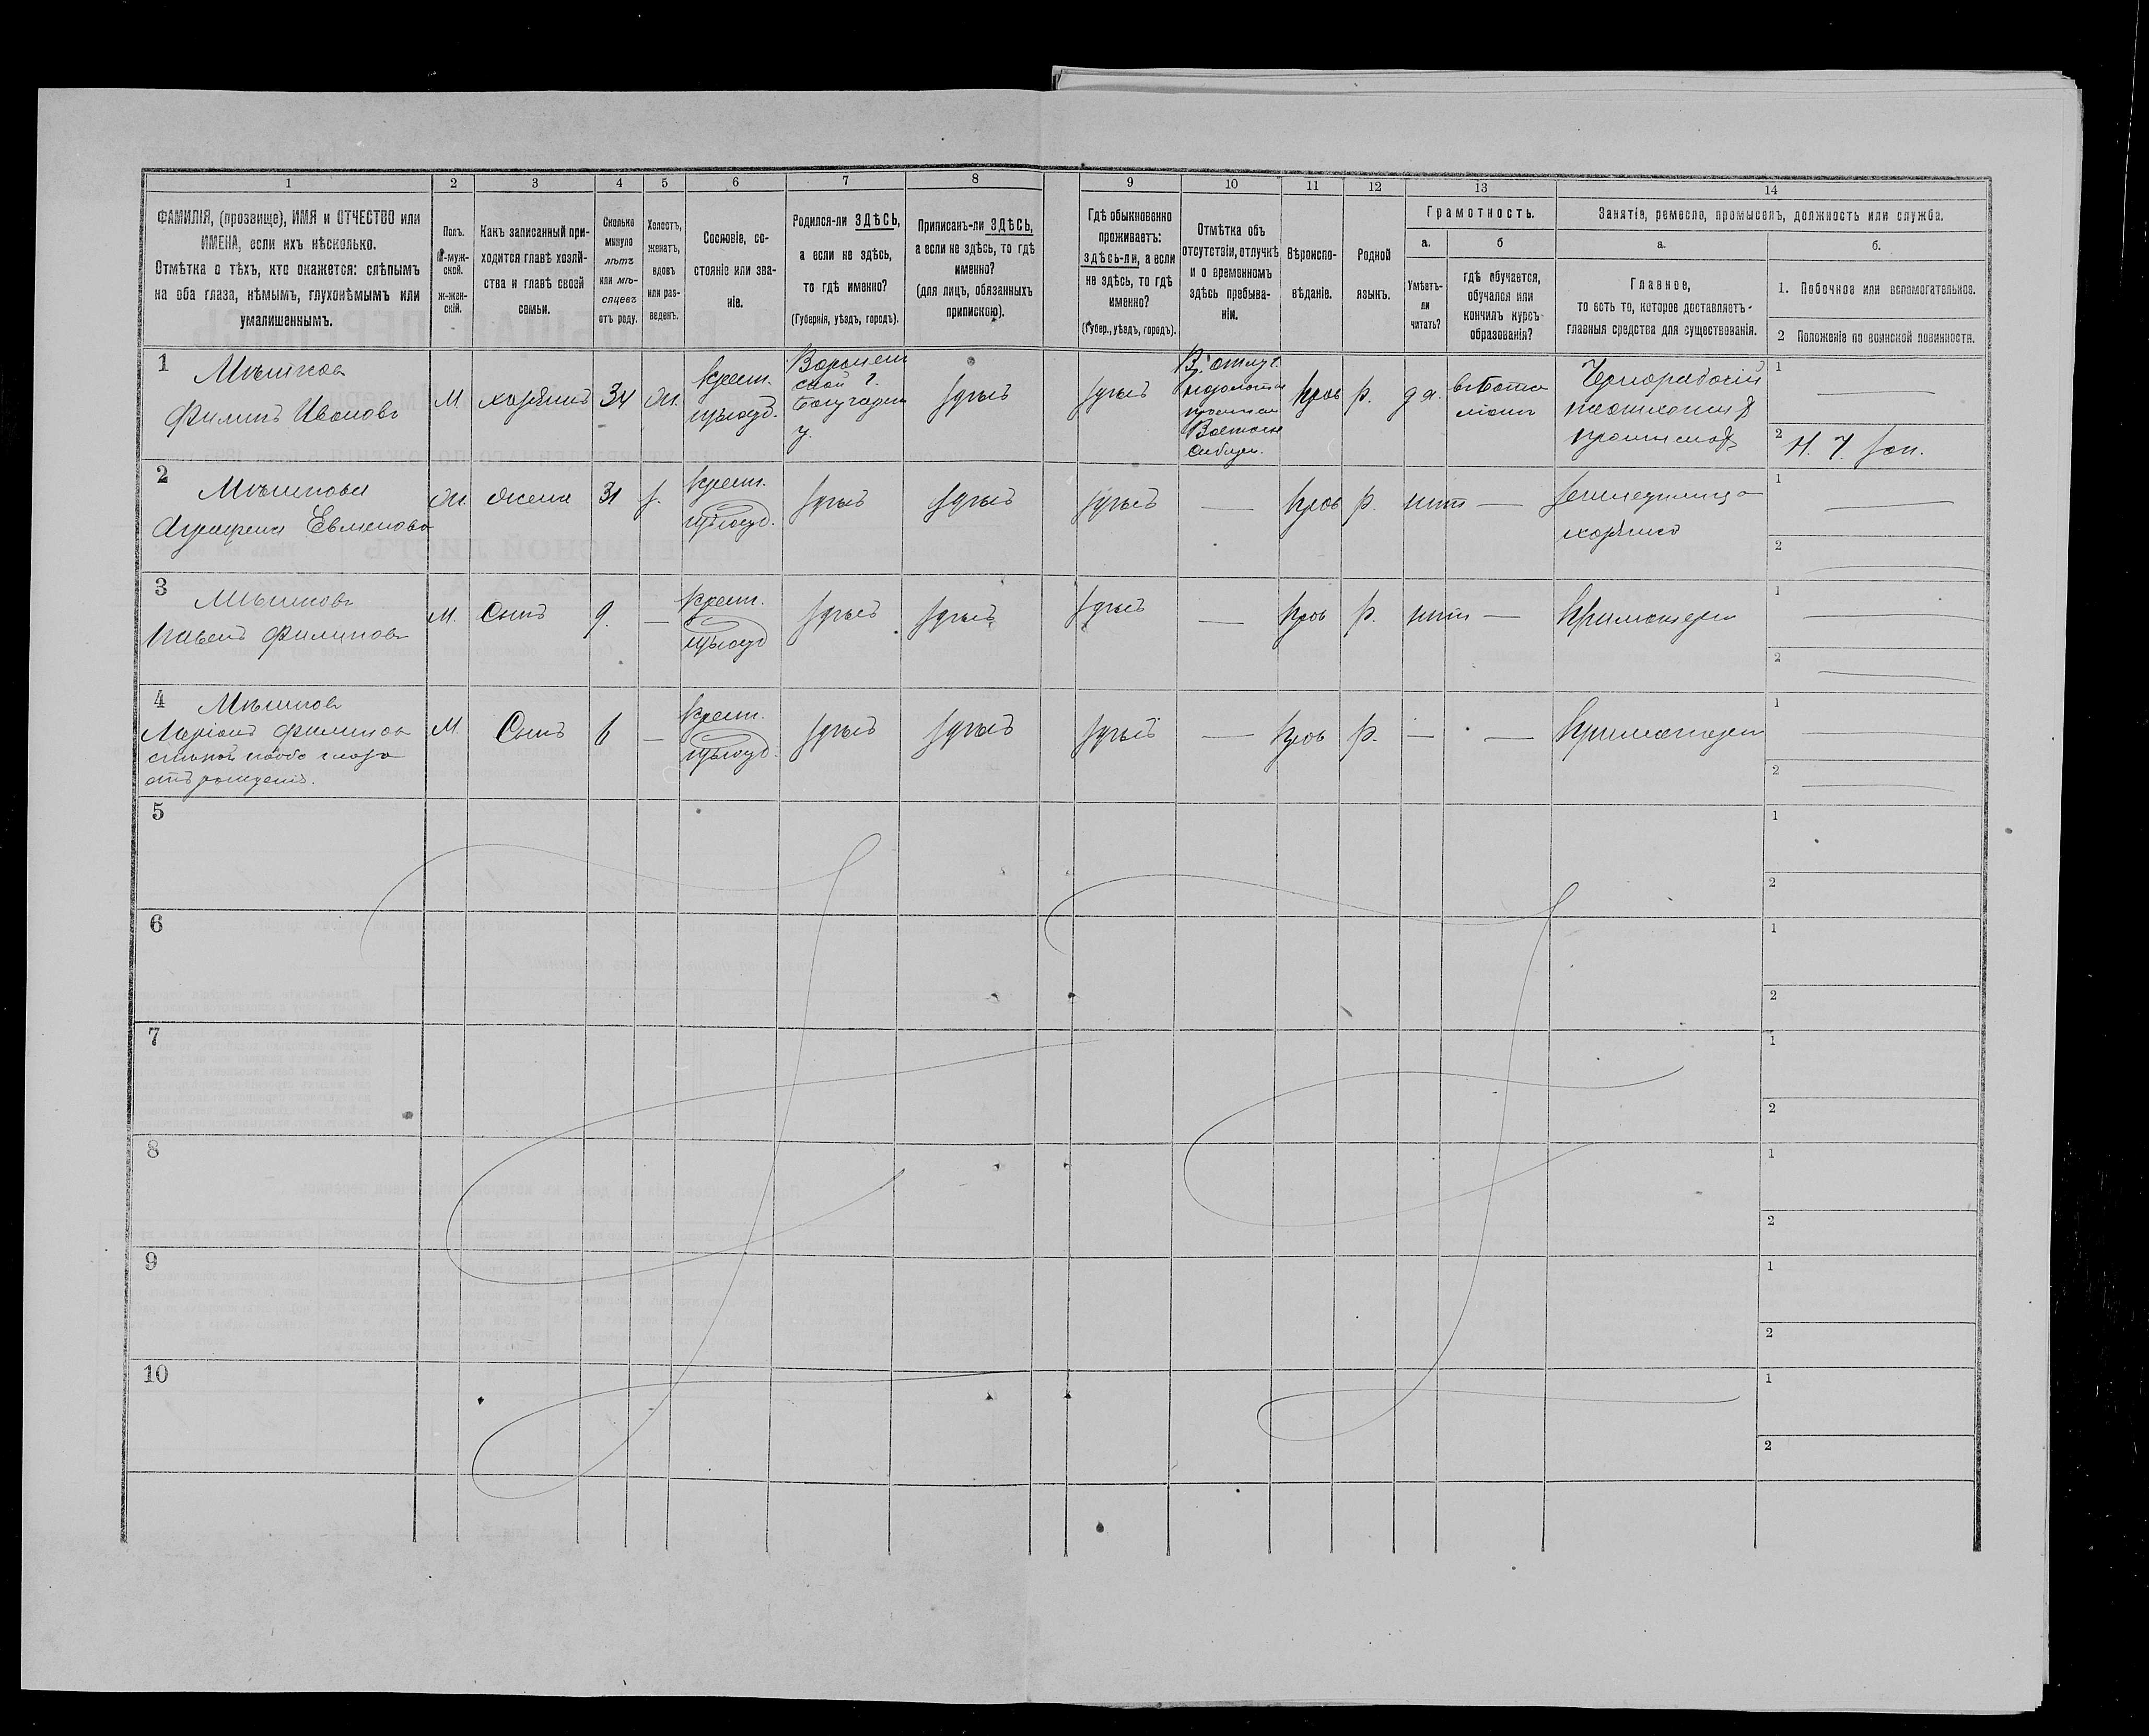 1
2
3
4
5
6
7
8
9
10
11
12
13
14
ФАМИЛІЯ, (прозвище), ИМЯ и ОТЧЕСТВО или
ИМЕНА, если ихъ нѣсколько.
Отмѣтка о тѣхъ, кто окажется: слѣпымъ
на оба глаза, нѣмымъ, глухонѣмымъ или
умалишеннымъ.
Полъ.
М-муж-
ской.
ж-жен-
скій.
Какъ записанный при-
ходится главѣ хозяй-
ства и главѣ своей
семьи.
Сколько
минуло
лѣтъ
или мѣ-
сяцевъ
отъ роду.
Холостъ,
женатъ,
вдовъ
или раз-
веденъ.
Сословіе, со-
стояніе или зва-
ніе.
Родился-ли ЗДѢСЬ,
а если не здѣсь,
то гдѣ именно?
(Губернія, уѣздъ, городъ).
Приписанъ-ли ЗДѢСЬ,
а если не здѣсь, то гдѣ
именно?
(для лицъ, обязанныхъ
припискою).
Гдѣ обыкновенно
проживаетъ:
здѣсь-ли, а если
не здѣсь, то гдѣ
именно?
(Губер., уѣздъ, городъ).
Отмѣтка объ
отсутствіи, отлучкѣ
и о временномъ
здѣсь пребыва-
ніи.
Вѣроиспо-
вѣданіе.
Родной
языкъ.
Грамотность.
а.
б
Умѣетъ-
ли
читать?
гдѣ обучается,
обучался или
кончилъ курсъ
образованія?
Занятіе, ремесло, промыселъ, должность или служба.
а.
б.
Главное,
то есть то, которое доставляетъ
главныя средства для существованія.
1. Побочное или вспомогательное.
2 Положеніе по воинской повинности.
1 Мѣшков
Филипъ Ивановъ
М.
хозяинъ
34
ж.
крест.
Воронеж
ской г.
Богучарск
у.
здѣсь
здѣсь
Въ отлуч.
Восточн
Сибири.
прав
р.
да
Чернорабочій
1
2 Н. Ч. зап.
2 Мѣшкова
Агрипена Евменова
ж.
жена
31
з.
крест.
здѣсь
здѣсь
здѣсь
—
прав
р.
нѣт
—
земледѣлица
хозяйка
1
2
3 Мѣшковъ
Павелъ Филипов
М.
Сынъ
9.
—
крест.
здѣсь
здѣсь
здѣсь
—
прав
р.
нѣт
—
При матери
1
2
4 Мѣшков
Ларіонъ Филипов
слѣпой на оба глаза
отъ рожденія.
М
Сынъ
6
—
крест.
здѣсь
здѣсь
здѣсь
—
прав
р.
—
—
При матери
1
2
5
1
2
6
1
2
7
1
2
8
1
2
9
1
2
10
1
2